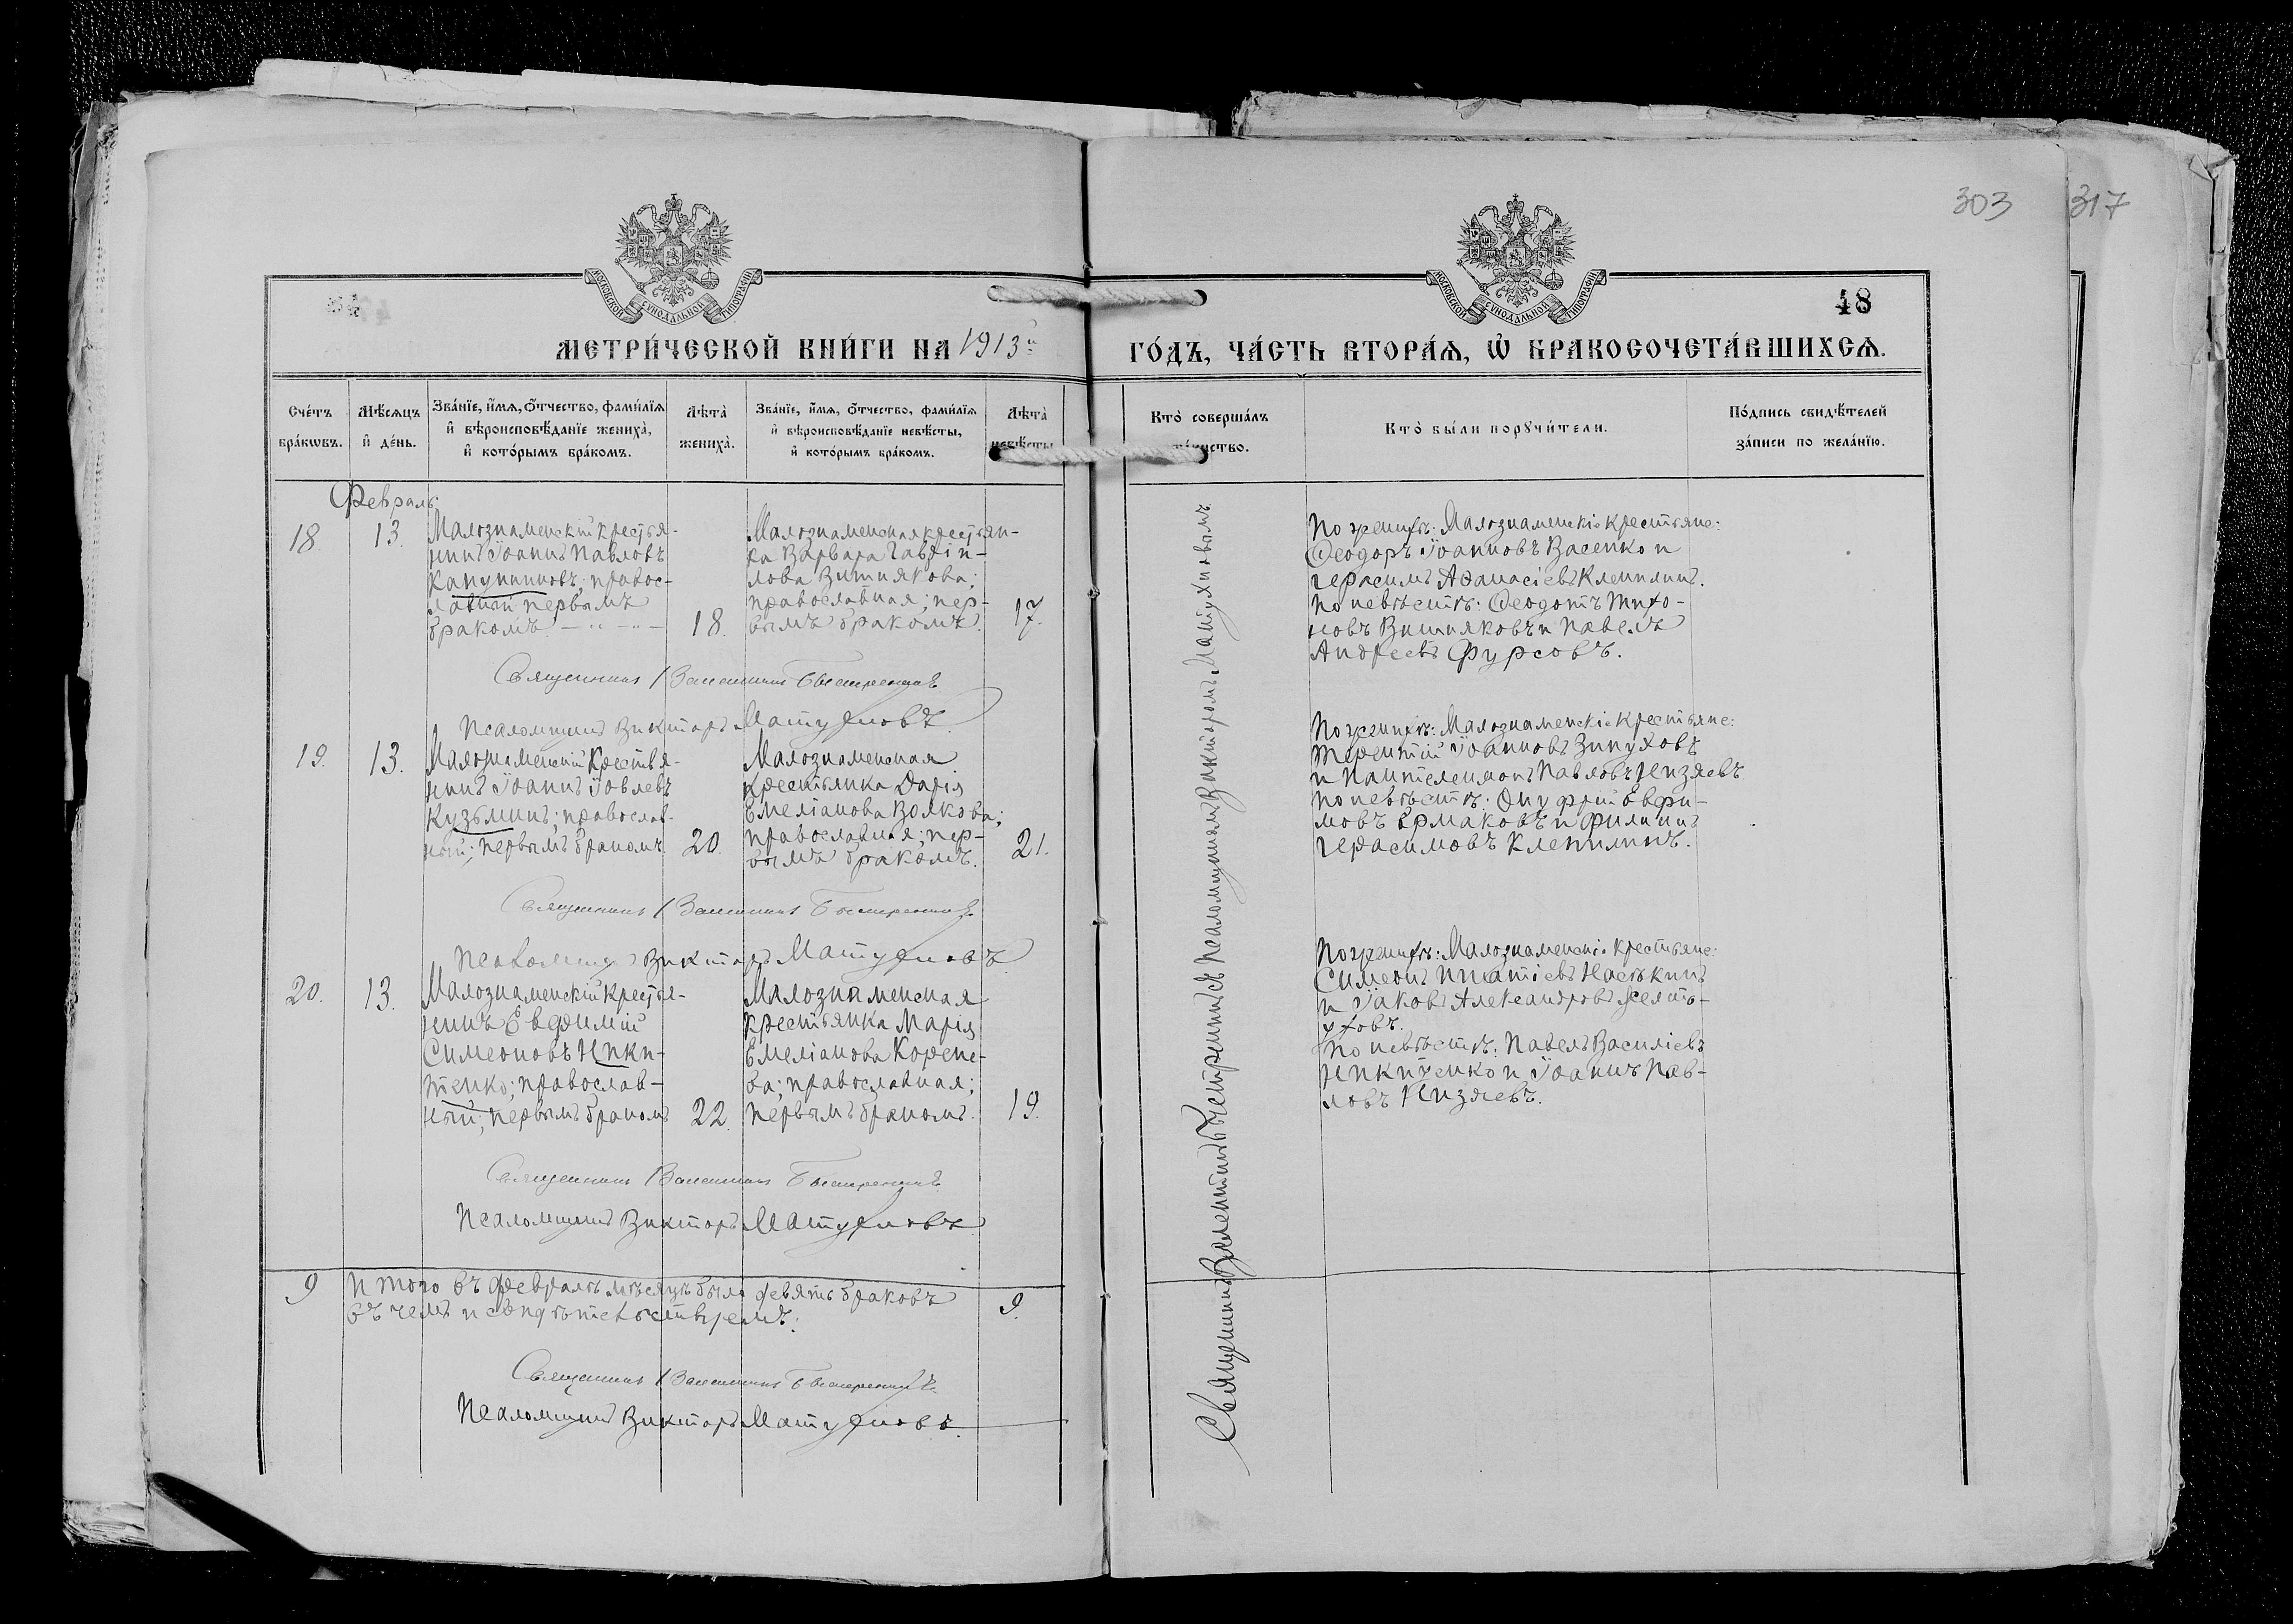 303
317
МОСКОВСКОЙ СУНОДАЛЬНОЙ ТИПОГРАФІИ
МОСКОВСКОЙ СУНОДАЛЬНОЙ ТИПОГРАФІИ
48
МЕТРИ́ЧЕСКОЙ КНИ́ГИ НА 1913й
ГО́ДЪ, ЧА́СТЬ ВТОРА́Я, Ѡ҆ БРАКОСОЧЕТА́ВШИХСЯ.
Сче́тъ бра́кѡвъ.
Мѣ́сяцъ и҆ де́нь.
Зва́нїе, и҆́мя, ѻ҆́тчество, фами́лїя и҆ вѣроисповѣ́данїе жениха̀, и҆ кото́рымъ бра́комъ.
Лѣта̀ жениха̀.
Зва́нїе, и҆́мя, ѻ҆́тчество, фами́лїя и҆ вѣроисповѣ́данїе невѣ́сты, и҆ кото́рымъ бра́комъ.
Лѣта̀ невѣ́сты
Кто̀ соверша́лъ та́инство.
Кто̀ бы́ли порꙋчи́тели.
По́дпись свидѣ́телей за́писи по жела́нїю.
Февраль.
18
13.
Малознаменскій крестья-
нинъ Іоаннъ Павловъ
Капунинновъ; правос-
лавный первымъ
бракомъ.
18.
Малознаменская крестьян-
ка Варвара Гавріи-
лова Вишнякова;
православная; пер-
вымъ бракомъ.
17.
По женихѣ: Малознаменскіе крестьяне:
Ѳеодоръ Іоанновъ Васенко и
Герасимъ Аѳанасіевъ Клепилинъ.
По невѣстѣ: Ѳеодотъ Тихо-
новъ Вишняковъ и Павелъ
Андреевъ Фурсовъ.
Священникъ Валентинъ
Псаломщикъ Викторъ Матухновъ
19.
13.
Малознаменскій Крестья-
нинъ Іоаннъ Іовлевъ
Кузьминъ; православ-
ный; первымъ бракомъ
20.
Малознаменская
крестьянка Дарія
Емеліанова Волкова;
православная; пер-
вымъ бракомъ.
21.
По женихѣ: Малознаменскіе крестьяне:
Терентій Іоанновъ Зинуховъ
и Пантелеимонъ Павловъ Низяевъ
По невѣстѣ: Онуфрій Евфи-
мовъ Ермаковъ и Филиппъ
Герасимовъ Клепилинъ.
Священникъ Валентинъ
Псаломщикъ Викторъ Матухновъ
20.
13.
Малознаменскій Крестья-
нинъ Евфимій
Симеоновъ Ники-
тенко; православ-
ный; первымъ бракомъ
22.
Малознаменская
крестьянка Марія
Емеліанова Корене-
ва; православная;
первымъ бракомъ.
19.
По женихѣ: Малознаменскіе крестьяне:
Симеонъ Игнатіевъ
и Іаковъ Александровъ Желто-
уховъ.
По невѣстѣ: Павелъ Василіевъ
Никитенко и Іоаннъ Пав-
ловъ Низяевъ.
Священникъ Валентинъ
Псаломщикъ Викторъ Матухновъ
Священникъ Валентинъ съ Псаломщикомъ Викторомъ Матухновымъ
9
Итого въ февралѣ мѣсяцѣ было девять браковъ
въ чемъ и свидѣтельствуемъ:
9.
Священникъ Валентинъ
Псаломщикъ Викторъ Матухновъ.